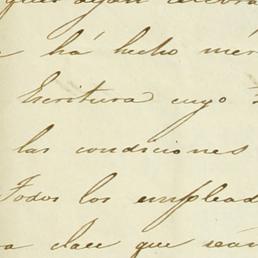 ha hecho mér
Escritura cuyo
las condiciones
Todos los emplead
a clase que sean